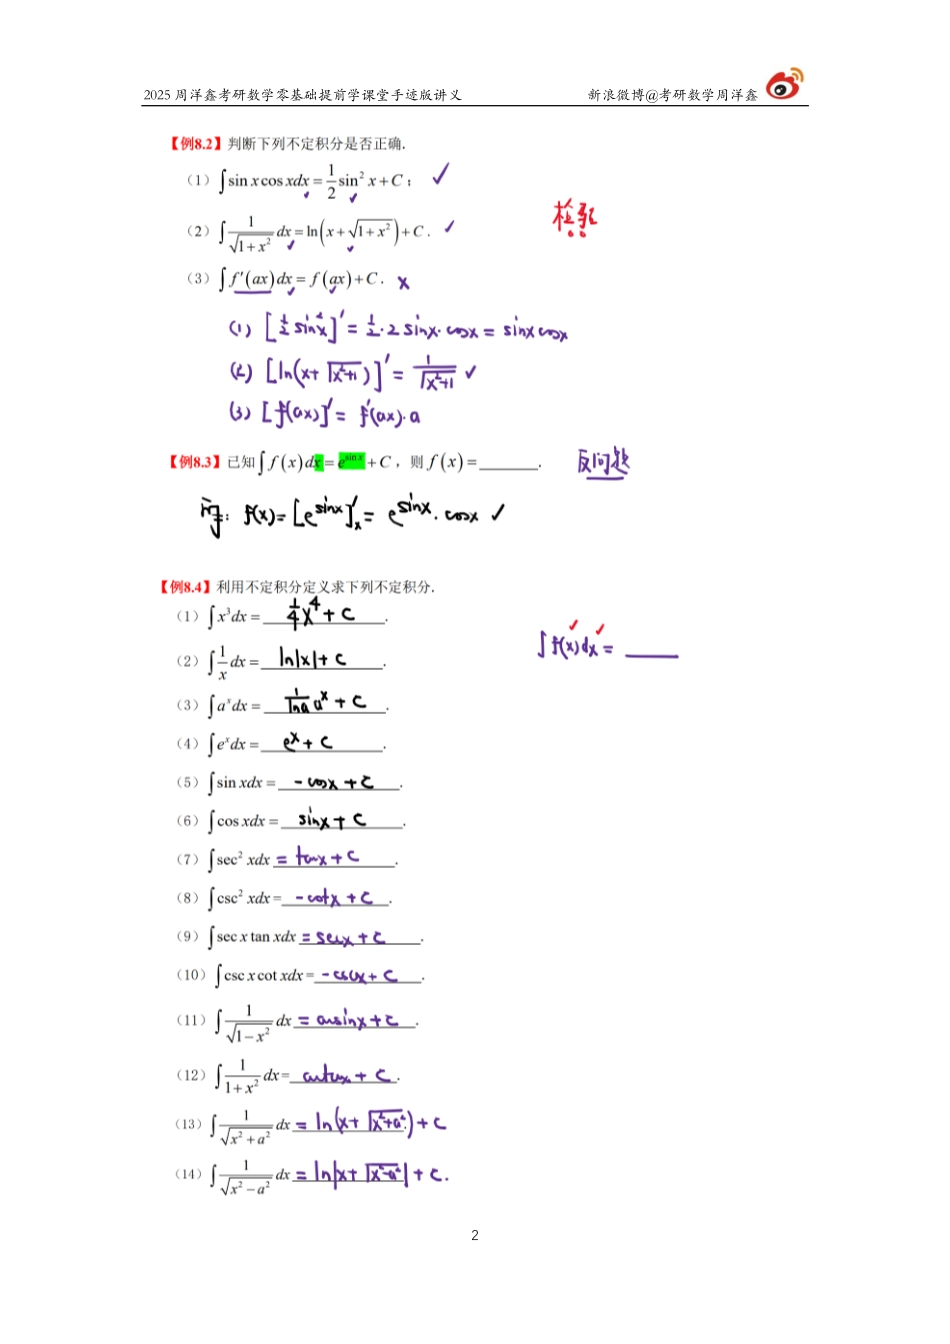 2025 周洋鑫考研数学零基础提前学课堂手迹版讲义 新浪微博@考研数学周洋鑫
【例8.2】判断下列不定积分是否正确.
（1）∫sin x cos xdx = 1/2 sin² x + C； ✓
（2）∫1/√(1+x²) dx = ln(x+√(1+x²)) + C. ✓
检验
（3）∫f′(ax)dx = f(ax) + C. ×
(1) [½ sin²x]′ = ½·2 sinx·cosx = sinx cosx
(2) [ln(x+√(x²+1))]′ = 1/√(x²+1) ✓
(3) [f(ax)]′ = f′(ax)·a
【例8.3】已知∫f(x)dx = e^(sin x) + C，则 f(x) = ______. 反问题
f(x) = [e^(sinx)]′ₓ = e^(sinx)·cosx ✓
【例8.4】利用不定积分定义求下列不定积分.
（1）∫x³dx = ¼x⁴ + C.
∫f(x)dx = ____
（2）∫1/x dx = ln|x| + C.
（3）∫aˣdx = 1/lna aˣ + C.
（4）∫eˣdx = eˣ + C.
（5）∫sin xdx = -cosx + C.
（6）∫cos xdx = sinx + C.
（7）∫sec² xdx = tanx + C.
（8）∫csc² xdx = -cotx + C.
（9）∫sec x tan xdx = secx + C.
（10）∫csc x cot xdx = -cscx + C.
（11）∫1/√(1−x²) dx = arcsinx + C.
（12）∫1/(1+x²) dx = arctanx + C.
（13）∫1/√(x²+a²) dx = ln(x+√(x²+a²)) + C
（14）∫1/√(x²−a²) dx = ln|x+√(x²-a²)| + C.
2